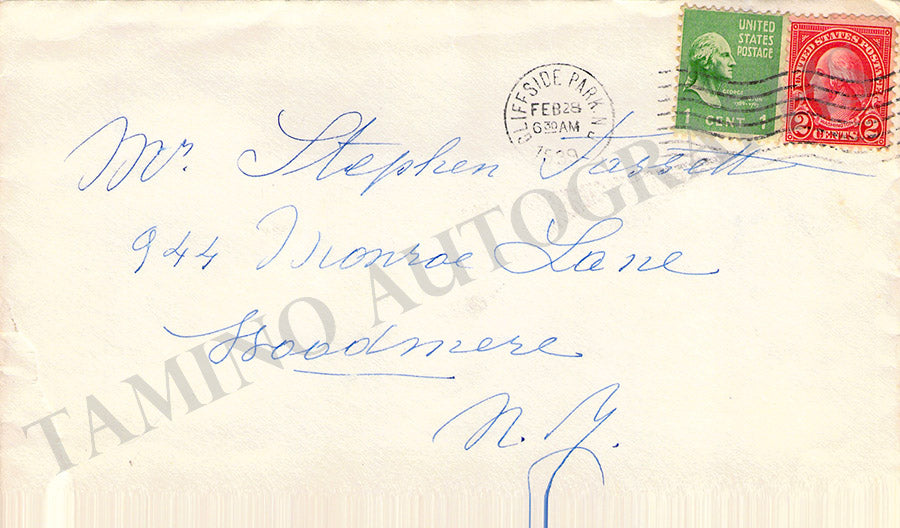 UNITED
STATES
POSTAGE
1 CENT 1
UNITED STATES POSTAGE
2 CENTS 2
CLIFFSIDE PARK N.J.
FEB 28
6 30 AM
1939
Mr. Stephen Fassett
944 Monroe Lane
Woodmere
N.Y.
TAMINO AUTOGRA